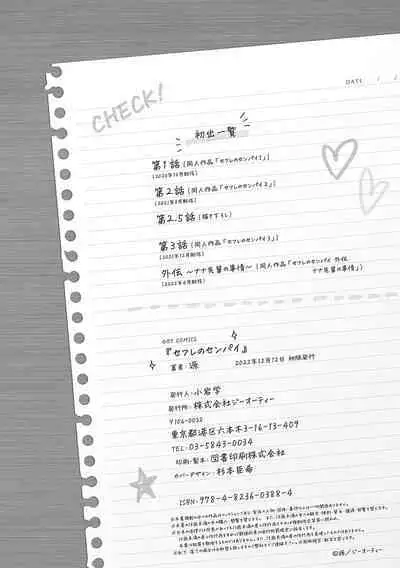 CHECK!
DATE / /
初出一覧
第1話 (同人作品「セフレのセンパイ1」)
(2020年12月配信)
第2話 (同人作品「セフレのセンパイ2」)
(2021年8月配信)
第2.5話 (描き下ろし)
第3話 (同人作品「セフレのセンパイ3」)
(2021年12月配信)
外伝 〜ナナ先輩の事情〜 (同人作品「セフレのセンパイ 外伝
ナナ先輩の事情」)
(2022年6月配信)
GOT COMICS
『セフレのセンパイ』
著者:源
2022年12月12日 初版発行
発行人:小岩学
発行所:株式会社ジーオーティー
〒106-0032
東京都港区六本木3-16-13-409
TEL:03-5843-0034
印刷・製本:図書印刷株式会社
カバーデザイン:杉本臣希
ISBN:978-4-8236-0388-4
©源/ジーオーティー